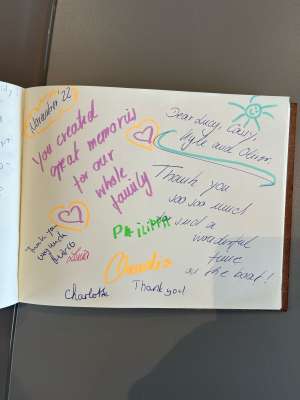 November '22
You created
great memories
for our
whole
family
Dear Lucy,
Kyle and Oliver,
Thank you
soo soo much
for such a
wonderful
time
on the boat!
Thank you
very much
PHILIPPA
Charlotte
Thank you!